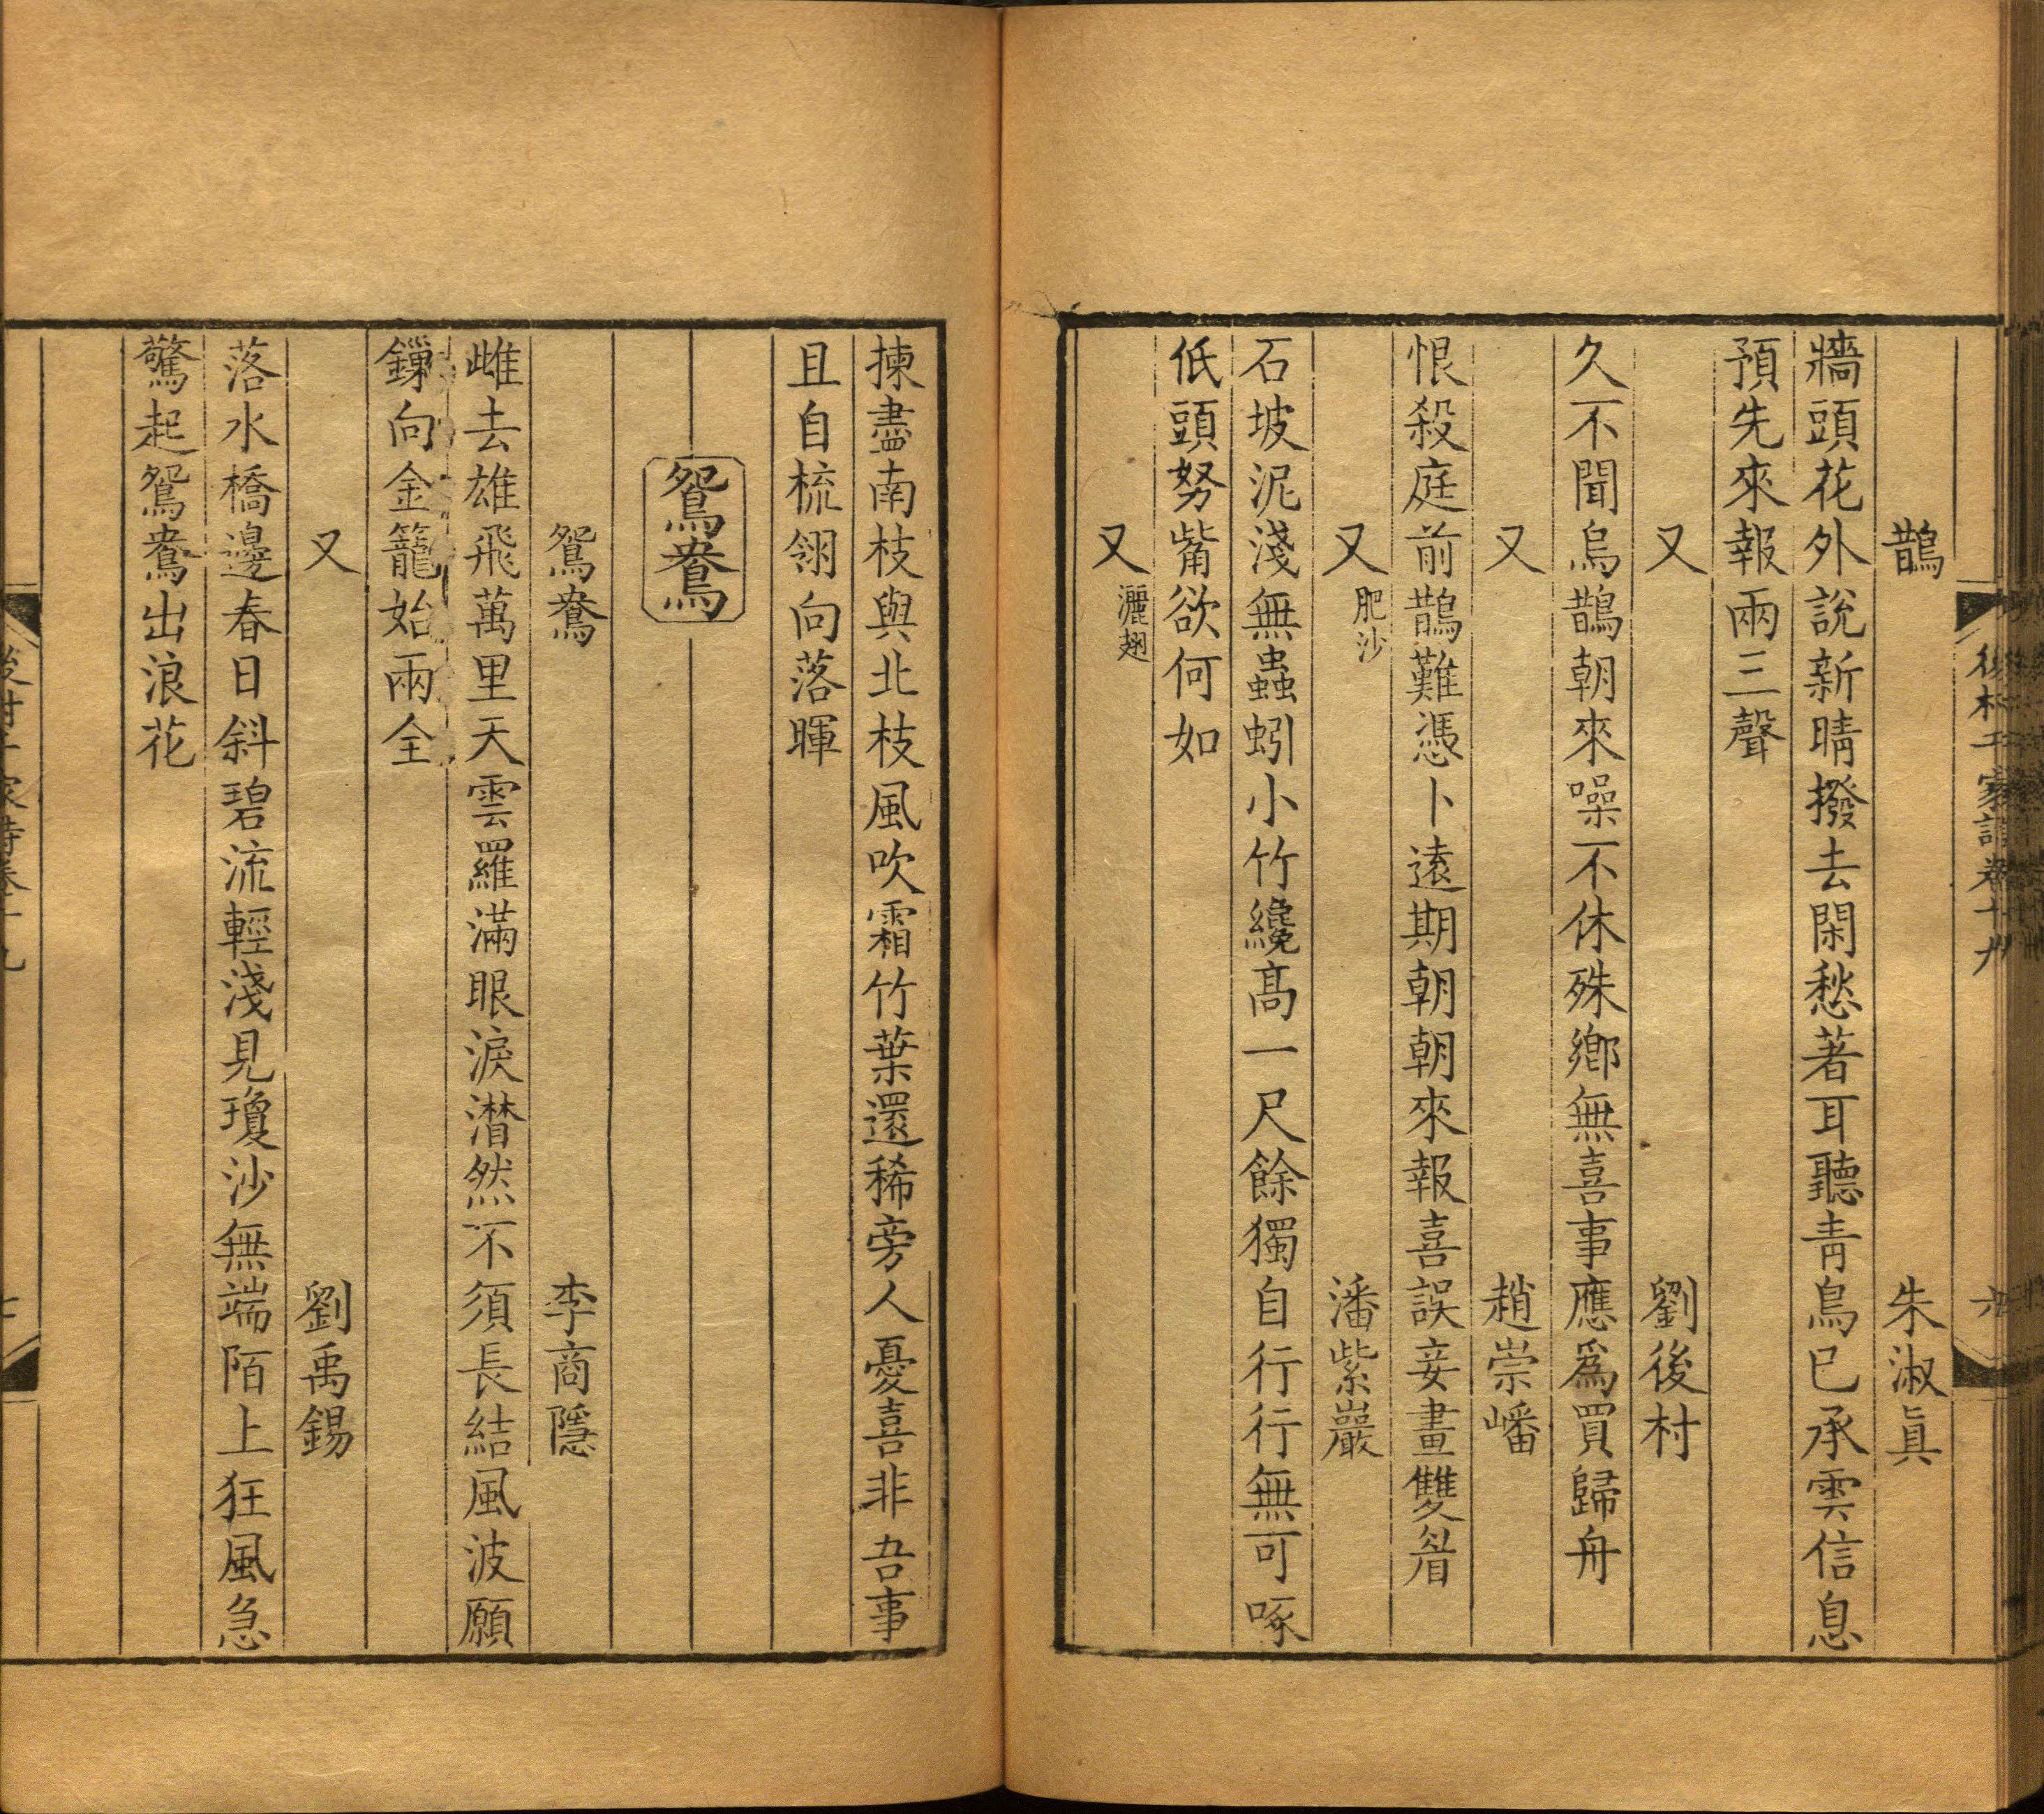 鵲 朱淑眞
牆頭花外說新晴撥去閑愁著耳聽青鳥已承雲信息
預先來報兩三聲
又 劉後村
久不聞烏鵲朝來噪不休殊鄉無喜事應爲買歸舟
又 趙崇嶓
恨殺庭前鵲難憑卜遠期朝朝來報喜誤妾畫雙眉
又 肥沙 潘紫巖
石坡泥淺無蟲蚓小竹纔高一尺餘獨自行行無可啄
低頭努觜欲何如
又 灑翅
揀盡南枝與北枝風吹霜竹葉還稀旁人憂喜非吾事
且自梳翎向落暉
鴛鴦
鴛鴦 李商隱
雌去雄飛萬里天雲羅滿眼淚潸然不須長結風波願
鏁向金籠始兩全
又 劉禹錫
落水橋邊春日斜碧流輕淺見瓊沙無端陌上狂風急
驚起鴛鴦出浪花